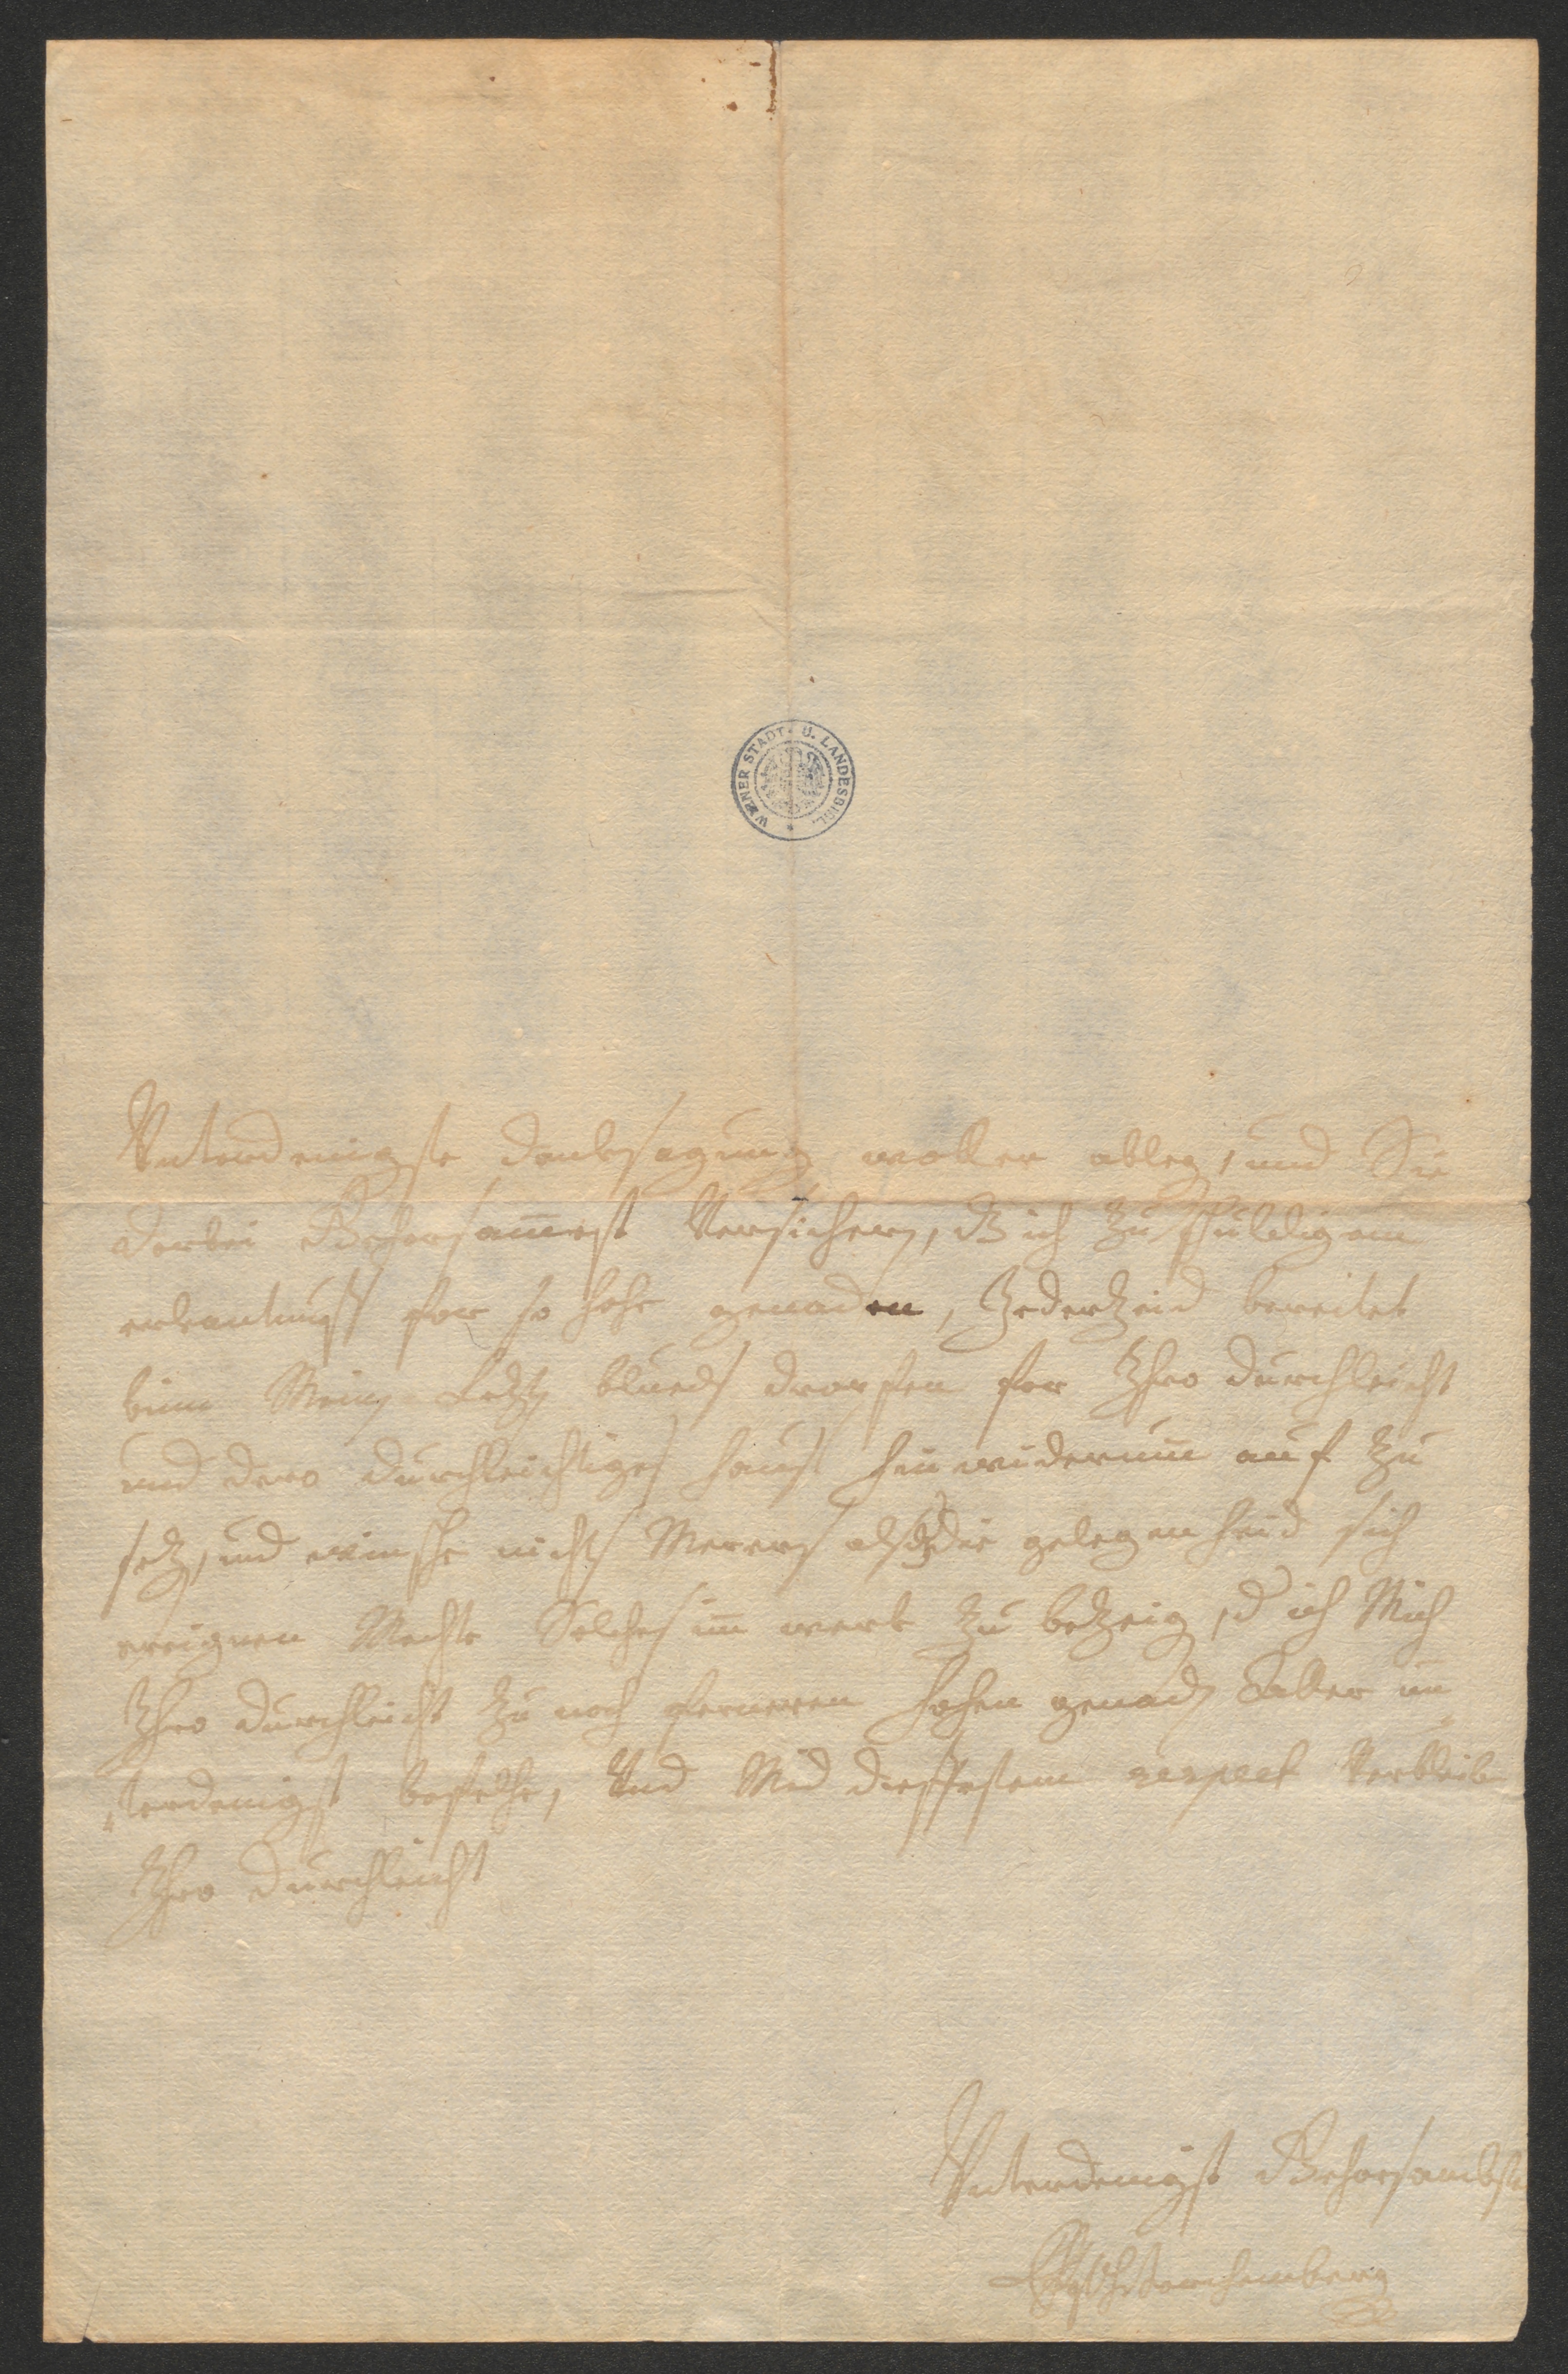 WIENER STADT- U. LANDESBIBL.
Unterdenigste danksagung wollen ableg, und Sie
darbei Gehorsamest Versichern, dß ich zu schuldigem
erkantnuß for so hohe genaden, Jederzeid bereitet
bin Meing Letzt blueds dropfen for Ihro durchleicht
und dero durchleichtiges hauß hin widerum auf zu
setz, und winsche nichts Merers als dß die gelegenheid sich
ereignen Mechte Solches im werk zu bezeig, d ich Mich
Ihro durchleicht zu noch ferneren hohen genadn Aller un
terdenigst befelche, Und Mid diefestem respect Verbleib
Ihro durchleicht
Unterdenigst Gehorsambst
Starhemberg